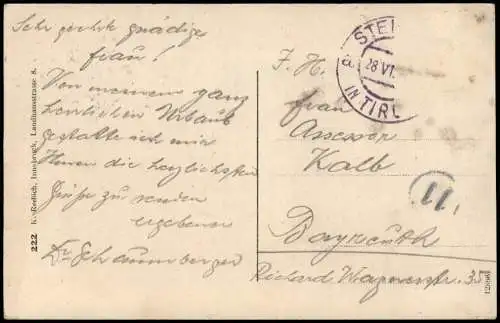 Sehr geehrte gnädige
Frau!
Von meinem ganz
herrlichen Urlaub
gestatte ich mir
Ihnen die herzlichsten
Grüße zu senden
ergebenst
Dr. Schaumberger
222 K. Redlich, Innsbruck, Landhausstrasse 8.
STEI
a.
28 VI.
IN TIROL
I. H.
Frau
Assessor
Kalb
11
Bayreuth
Richard Wagnerstr. 37